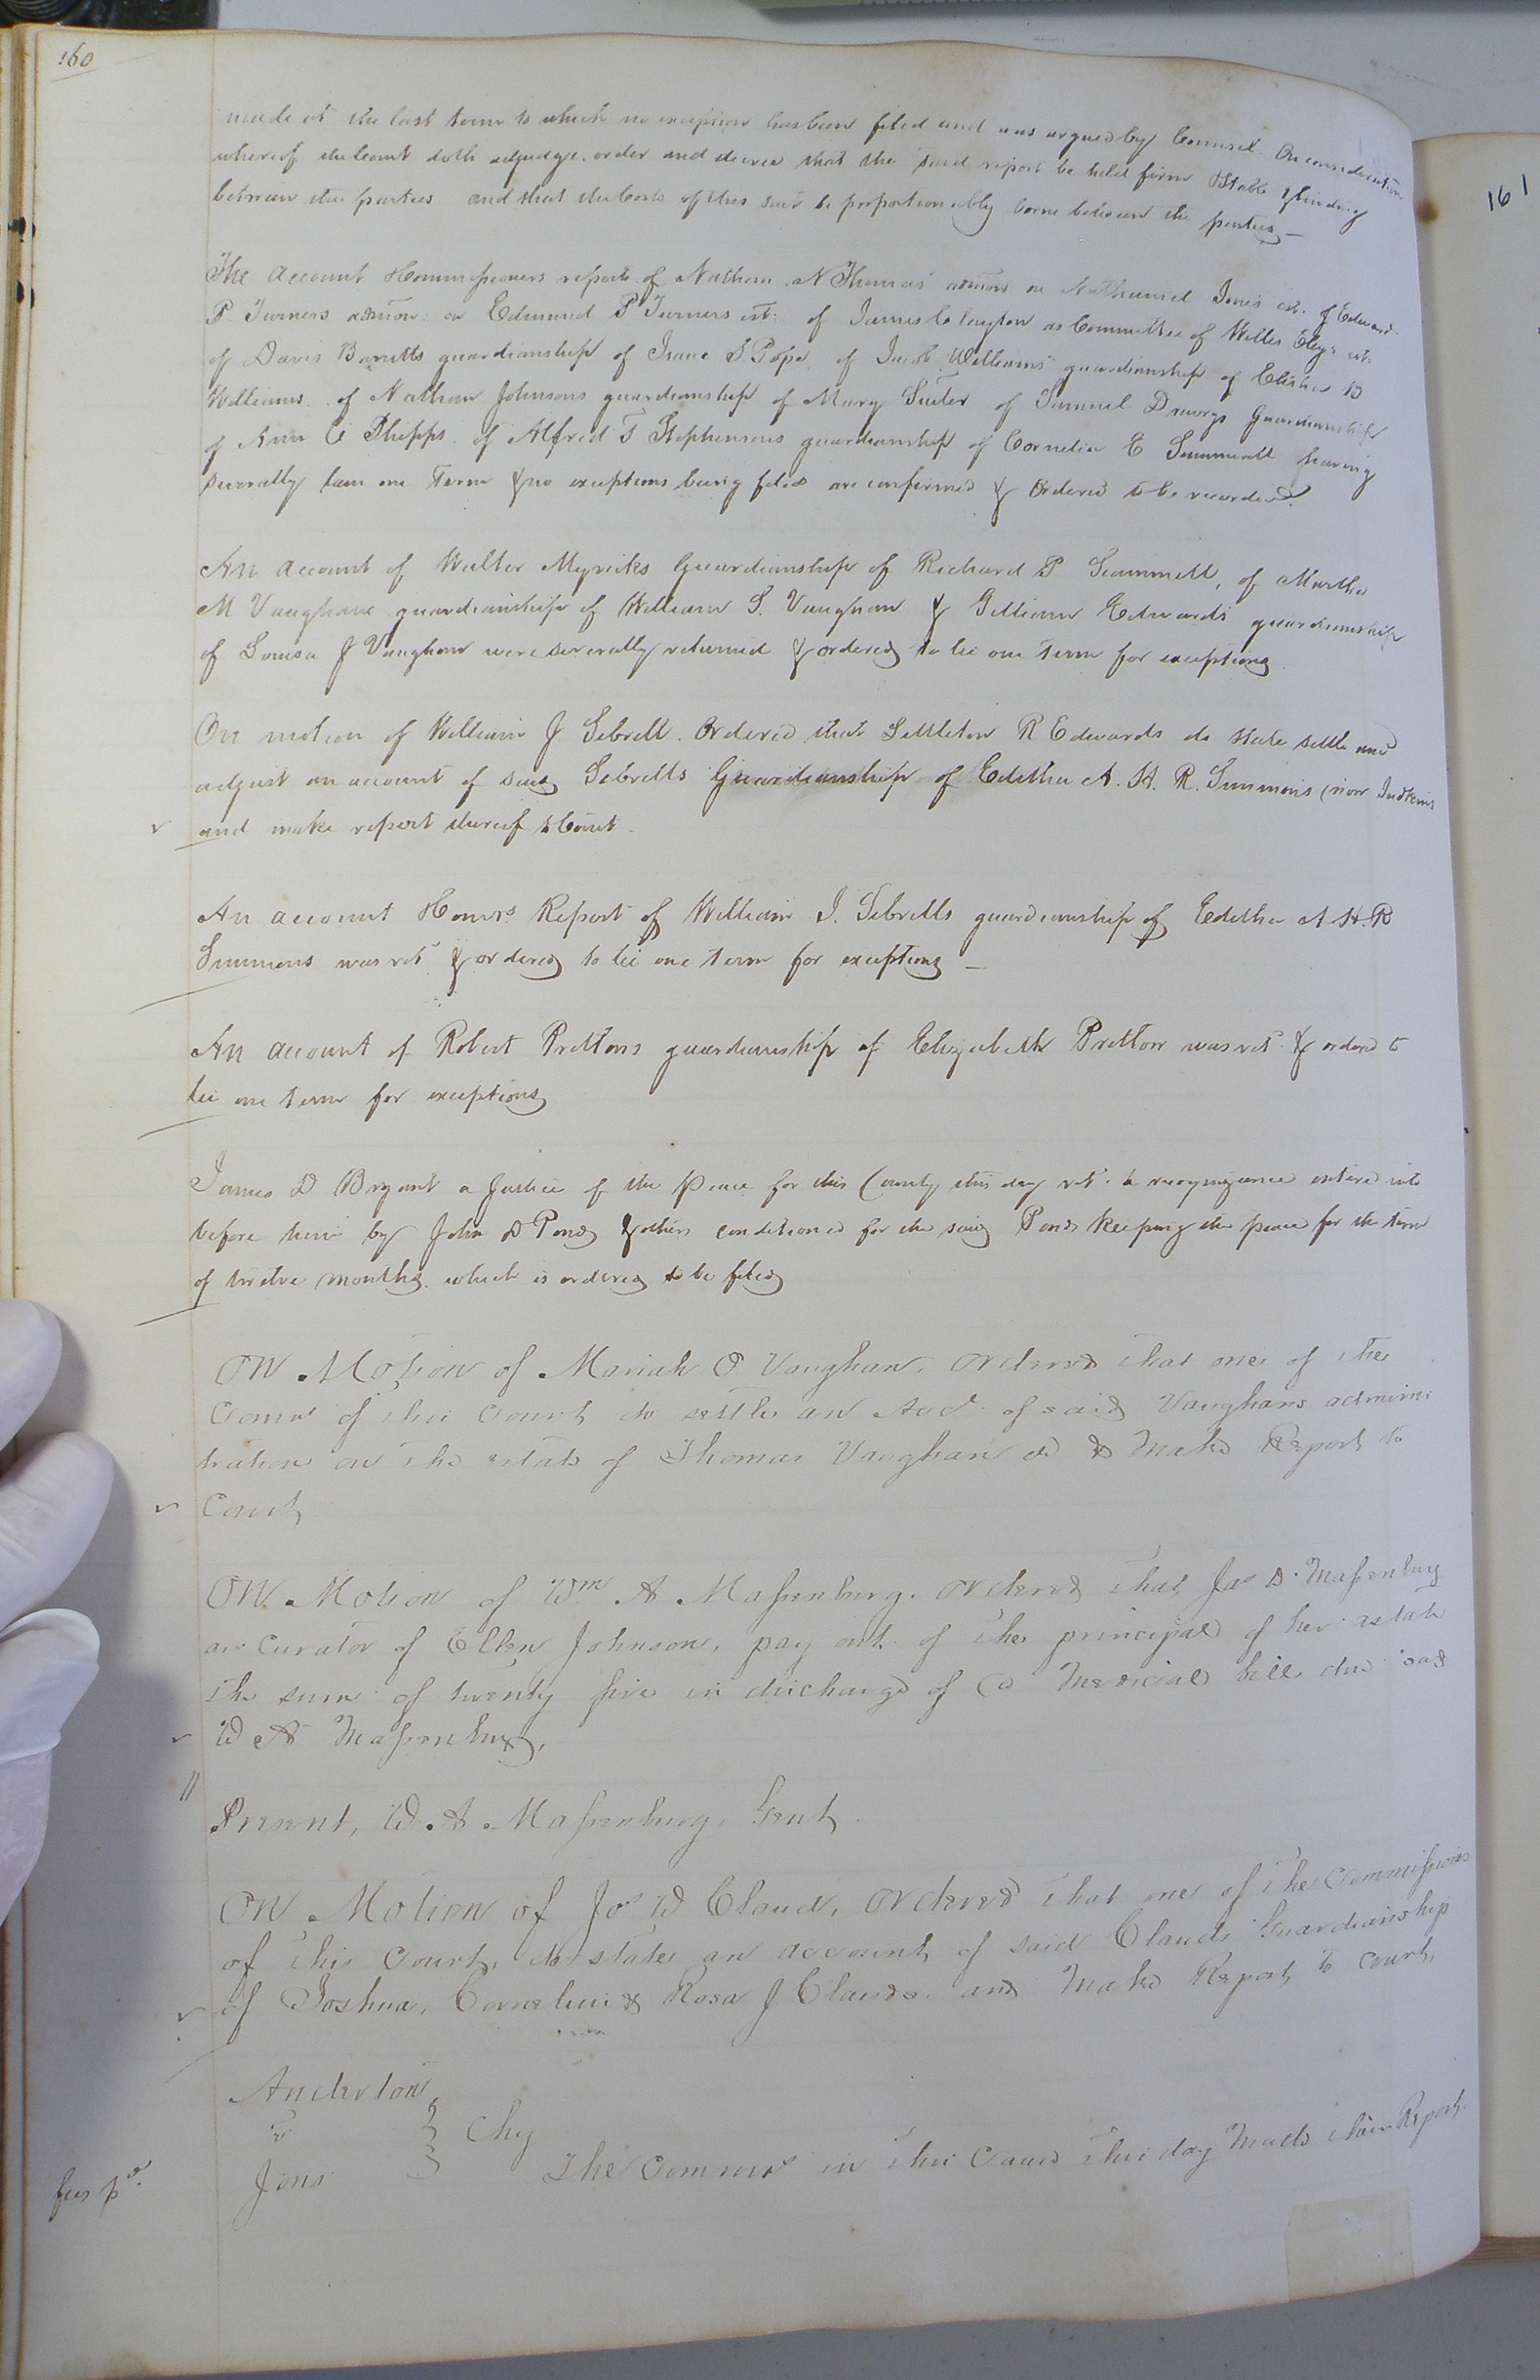 160
made at the last term to which no exception has been filed and was argued by Counsel. On consideration
whereof the Court doth adjudge, order and decree that the said report be held firm & Stable & binding
between the parties and that the Costs of this suit be proportionably borne between the parties —
The Account & Commissioners reports of Nathan N Thomas' admon on Nathaniel Jones est. of Edward
P. Turners admon: on Edmund P Turners est: of James Clayton as Committee of Willis Eleys est.
of Davis Barretts guardianship of Isaac S. Pope, of Jacob Williams' guardianship of Elisha B
Williams, of Nathan Johnsons guardianship of Mary Suiter of Samuel Drewrys Guardianship
of Ann E Phipps. of Alfred T Stephensons guardianship of Cornelia E Summerell having
severally lain one Term & no exceptions being filed are confirmed & Ordered to be recorded.
An Account of Walter Myricks Guardianship of Richard P. Scammell, of Martha
M Vaughans guardianship of William S. Vaughan & Gilliam Edwards guardianship
of Louisa J Vaughan were severally returned & ordered to lie one term for exceptions.
On motion of William J Sebrell. Ordered that Littleton R Edwards do state settle and
adjust an account of said Sebrells Guardianship of Editha A. H. R. Simmons (now Judkins
and make report thereof to Court.
An account & Comrs Report of William J. Sebrells guardianship of Editha A. H. R
Simmons was ret & ordered to lie one term for exceptions —
An Account of Robert Prettons guardianship of Elizabeth Pretton was ret & ordered to
lie one term for exceptions
James D Bryant a Justice of the Peace for this County this day ret. a recognizance entered into
before him by John D Pond & others conditioned for the said Ponds keeping the peace for the term
of twelve months which is ordered to be filed
ON Motion of Mariah P Vaughan, ordered that one of the
Comrs of this Court, do settle an Acct. of said Vaughans adminis
tration on the estate of Thomas Vaughan dd & make Report to
Court
ON Motion of Wm A Massenburg. ordered that Jas D. Massenburg
as curator of Ellen Johnson, pay out of the principal of her estate
the sum of twenty five in discharge of a Medical bill due said
W A Massenburg.
Present, W. A Massenburg, Gent.
ON Motion of Jos W Claud, ordered that one of the Commissioners
of this Court, do state an account, of said Clauds Guardianship
of Joshua, Cornelius & Rosa J Clauds. and make Report, to Court.
Anderton
v } Chy
Jones
The Commrs in this Cause this day made their Report.
fees pd.
161